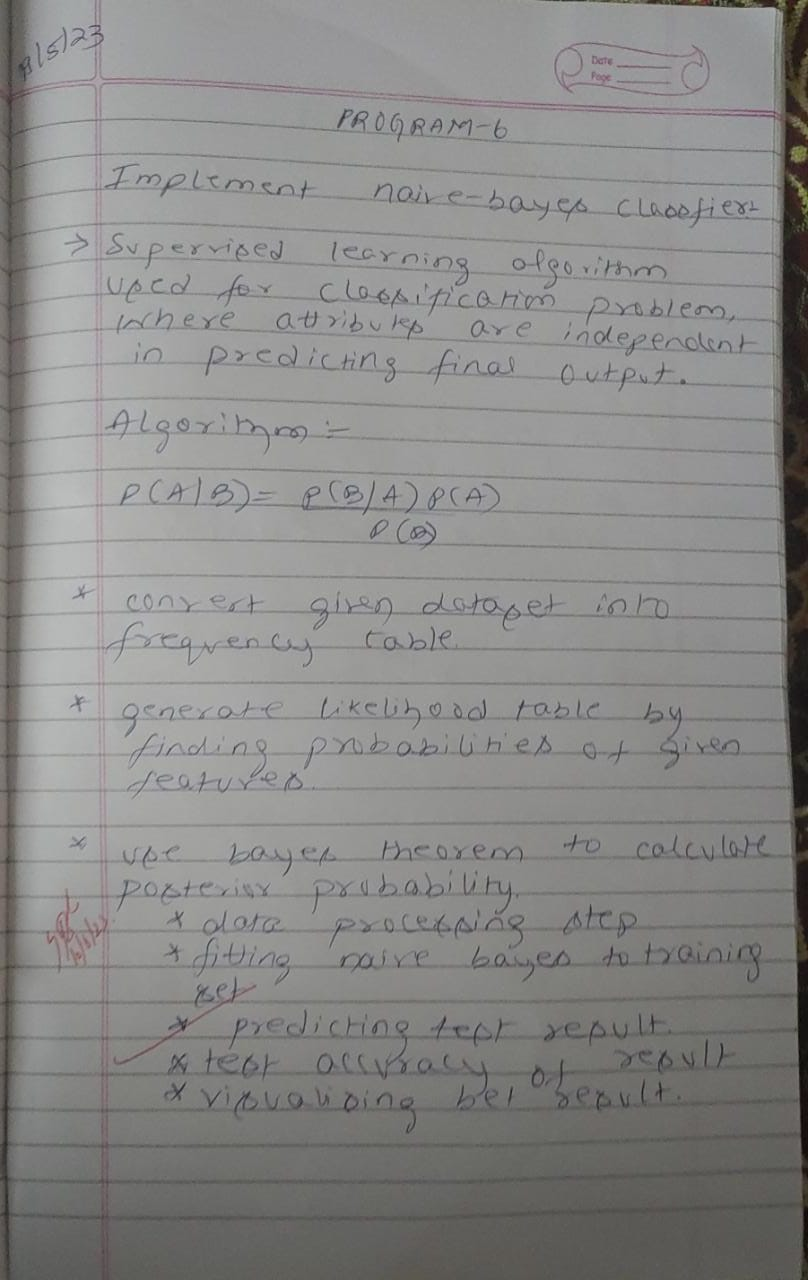 8/5/23
Date
Page
PROGRAM-6
Implement naive-bayes classfier:-
→ Supervised learning algorithm
used for classification problem,
where attributes are independent
in predicting final output.
Algorithm :-
P(A|B) = P(B/A) P(A)
P(B)
* convert given dataset into
frequency table.
* generate likelihood table by
finding probabilities of given
features.
* use bayes theorem to calculate
posterior probability.
* data processing step
* fitting naive bayes to training
set
* predicting test result.
* test accuracy of result
* visualising result.